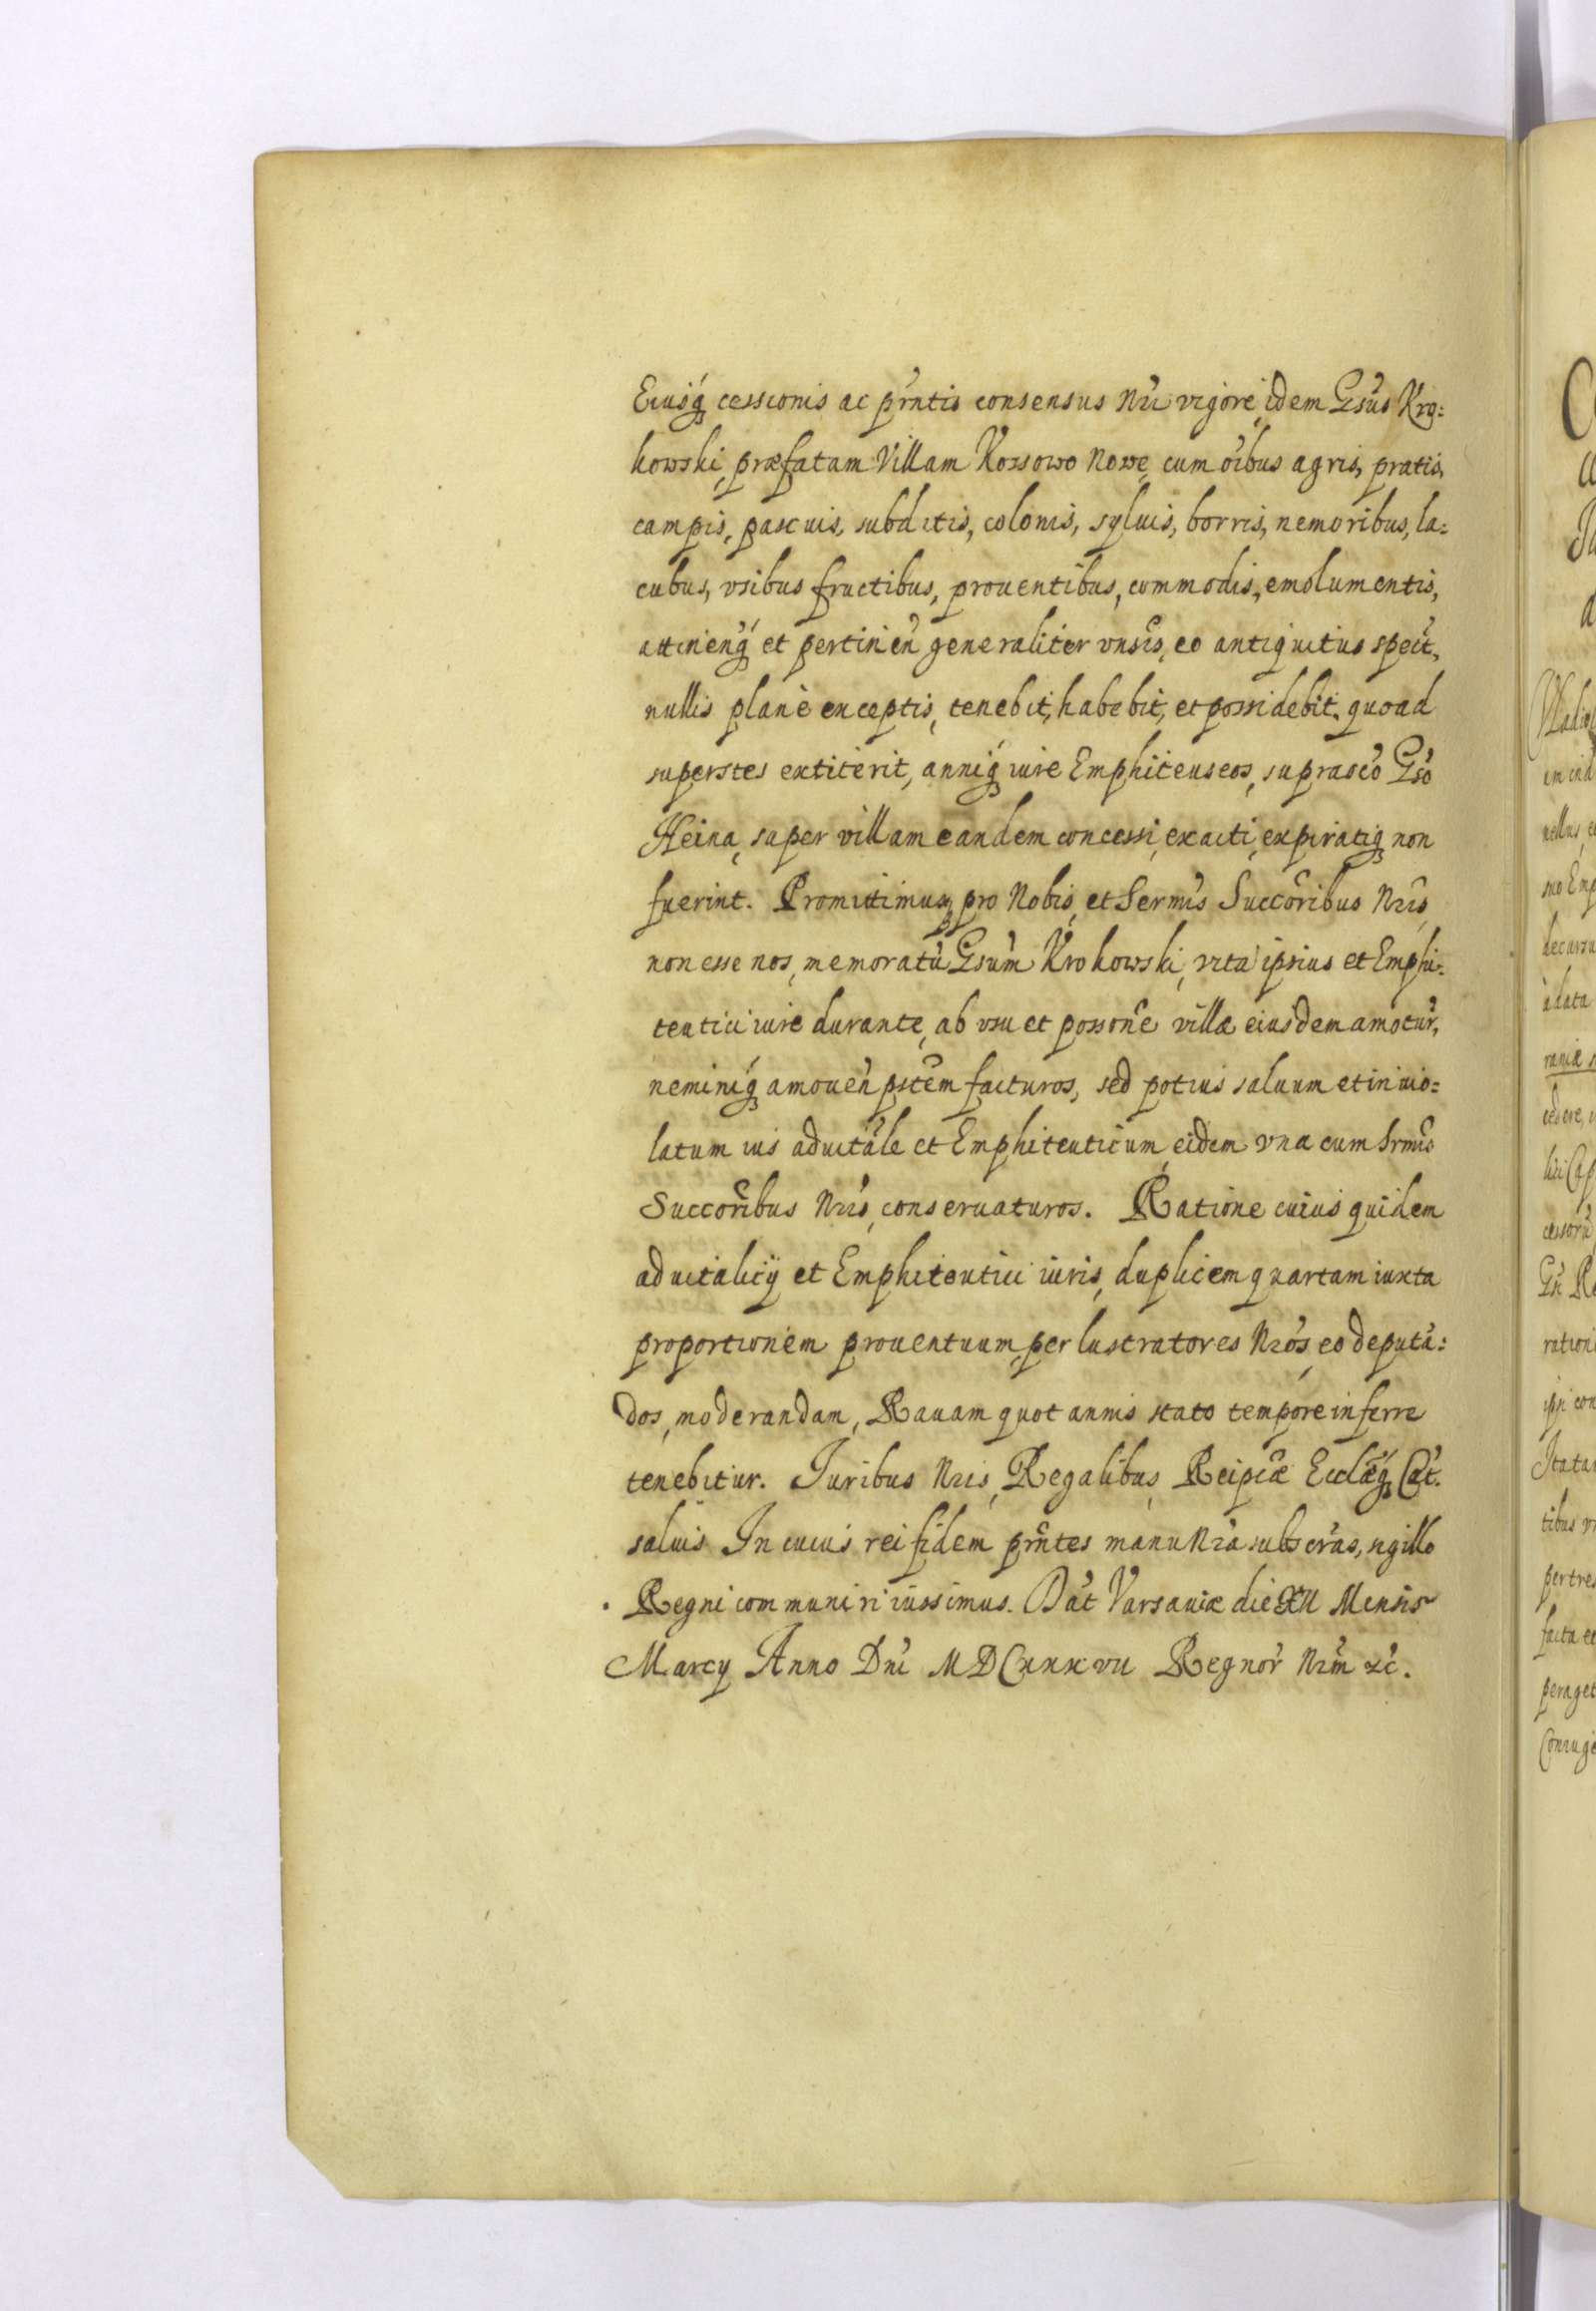 Eiusq́ȝ cessionis ac pñtis consensus Nři vigore, idem Gsũs Kro=
kowski, præfatam Villam Kossowo Nowe, cum oĩbus agris, pratis,
campis, pascuis, subditis, colonis, syluis, borris, nemoribus, la=
cubus, vsibus fructibus, prouentibus, commodis, emolumentis,
attineñq́ȝ et pertineñ generaliter vnsĩs, eo antiquitus spect̃,
nullis planè exceptis, tenebit, habebit, et possidebit, quoad
superstes extiterit, anniq́ȝ iure Emphiteuseos, suprascõ Gsõ
Heina, super villam eandem concessi, exacti, expiratiqȝ non
fuerint. Promittimusqȝ pro Nobis, et Sermĩs Succoribus Nr̃is,
non esse nos, memoratũ Gsum̃ Krokowski, vita ipsius et Emphi=
teutici iure durante, ab vsu et possoñe villæ eiusdem amotur̃,
neminiq́ȝ amoueñ pt̃em facturos, sed potius saluum et inuio=
latum ius aduitãle et Emphiteuticum, eidem vna cum Srmĩs
Succor̃ibus Nr̃is, conseruaturos. Ratione cuius quidem
aduitalicij et Emphiteutici iuris, duplicem quartam iuxta
proportionem prouentuum, per lustratores Nr̃os, eo deputã=
dos, moderandam, Rauam quot annis stato tempore inferre
tenebitur. Iuribus Nr̃is, Regalibus, Reipcæ̃ Ecclæ̃q́ȝ Cat̃.
saluis In cuius rei fidem pñtes manu Nr̃a subscr̃as, sigillo
Regni communiri iussimus. Dat̃ Varsauiæ die XII Mensis
Marcy Anno Dñi MDCxxxvii Regnor̃ Nr̃m̃ &c̃.